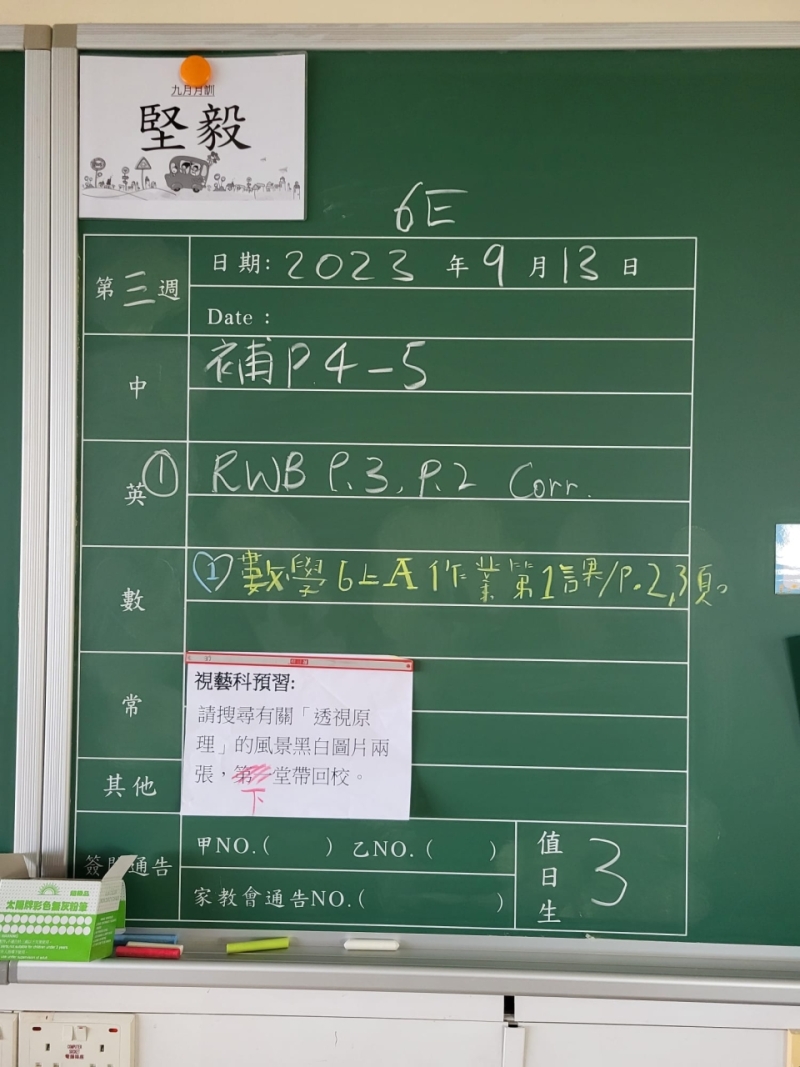 九月月訓
堅毅
6E
第三週
日期: 2023 年 9 月 13 日
Date :
中
補 P.4-5
英
① RWB P.3, P.2 Corr.
數
① 數學6上A作業第1課/P.2,3頁。
常
視藝科預習:
請搜尋有關「透視原
理」的風景黑白圖片兩
張，下堂帶回校。
其他
通告
甲NO.( ) 乙NO.( )
家教會通告NO.( )
值日生
3
太陽牌彩色無灰粉筆